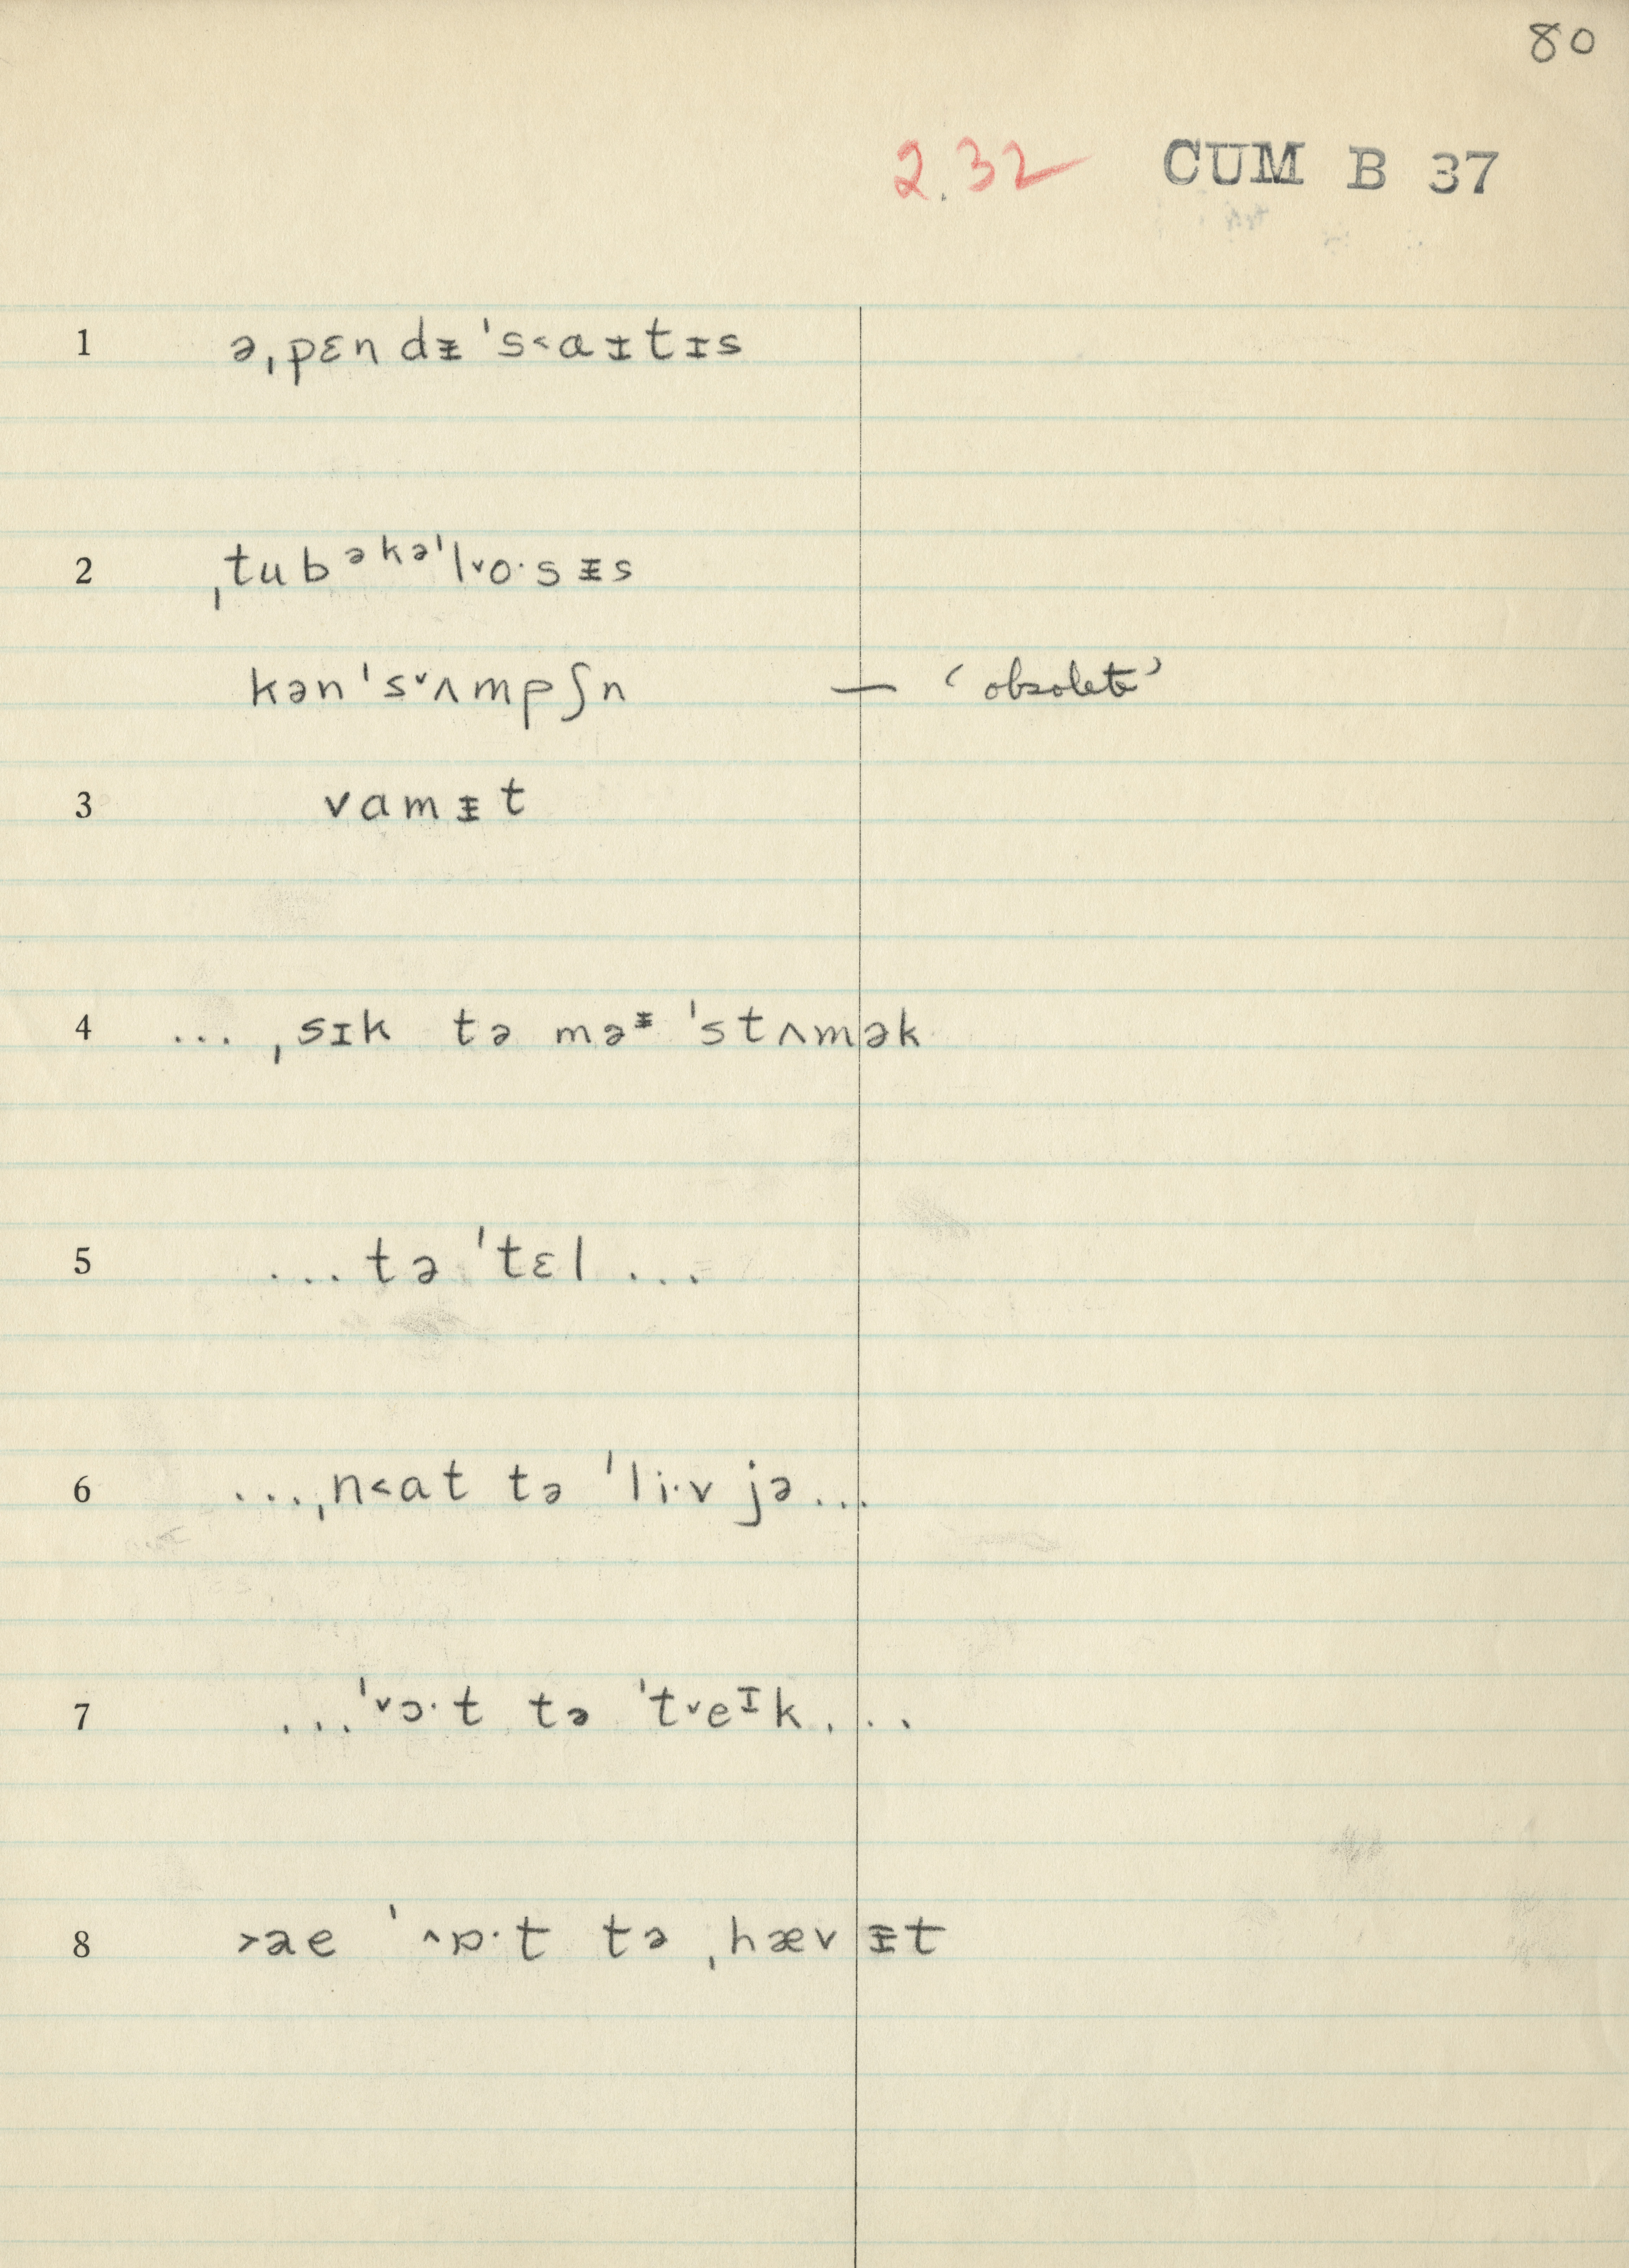 80
2.32 CUM B 37
1 ə,pɛndᵻ's˂aᵻtɪs
2 ,tubᵊᵏᵊ'l˅o·sᵻs
kən's˅ʌmpʃn — ‘obsolete’
3 vamᵻt
4 ... ,sɪk tə məᵻ 'stʌmək
5 ...tə 'tɛl ...
6 ...,n˂at tə 'li·v jə...
7 ...'˅ɔ·t tə 't˅eᶦk...
8 ˃ae '˄ɒ·t tə ,hævᵻt